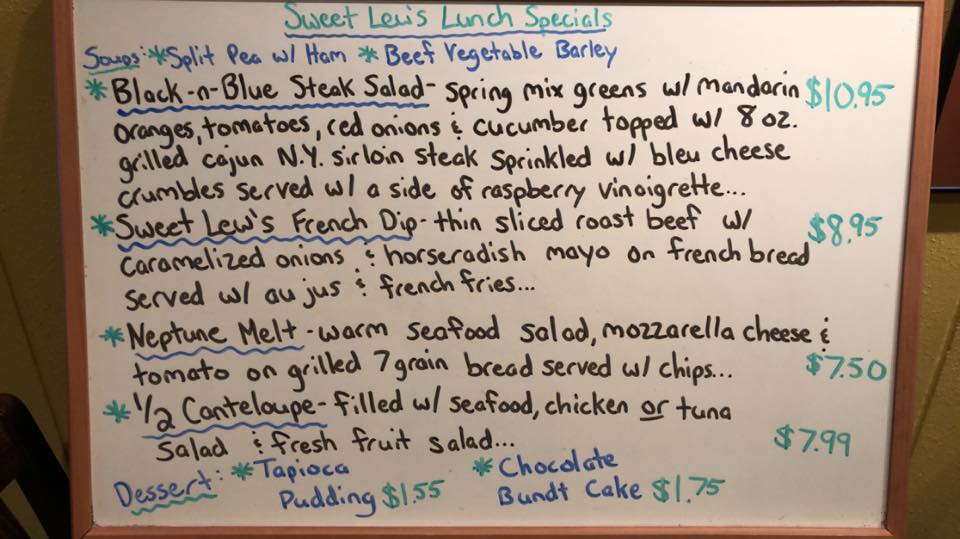 Sweet Lew's Lunch Specials
Soups: *Split Pea w/ Ham * Beef Vegetable Barley
*Black-n-Blue Steak Salad- spring mix greens w/ mandarin $10.95
oranges, tomatoes, red onions & cucumber topped w/ 8 oz.
grilled cajun N.Y. sirloin steak sprinkled w/ bleu cheese
crumbles served w/ a side of raspberry vinaigrette...
*Sweet Lew's French Dip-thin sliced roast beef w/ $8.95
caramelized onions & horseradish mayo on french bread
served w/ au jus & french fries...
*Neptune Melt-warm seafood salad, mozzarella cheese &
tomato on grilled 7 grain bread served w/ chips... $7.50
*1/2 Canteloupe-filled w/ seafood, chicken or tuna
salad & fresh fruit salad... $7.99
Dessert: *Tapioca *Chocolate
Pudding $1.55 Bundt Cake $1.75